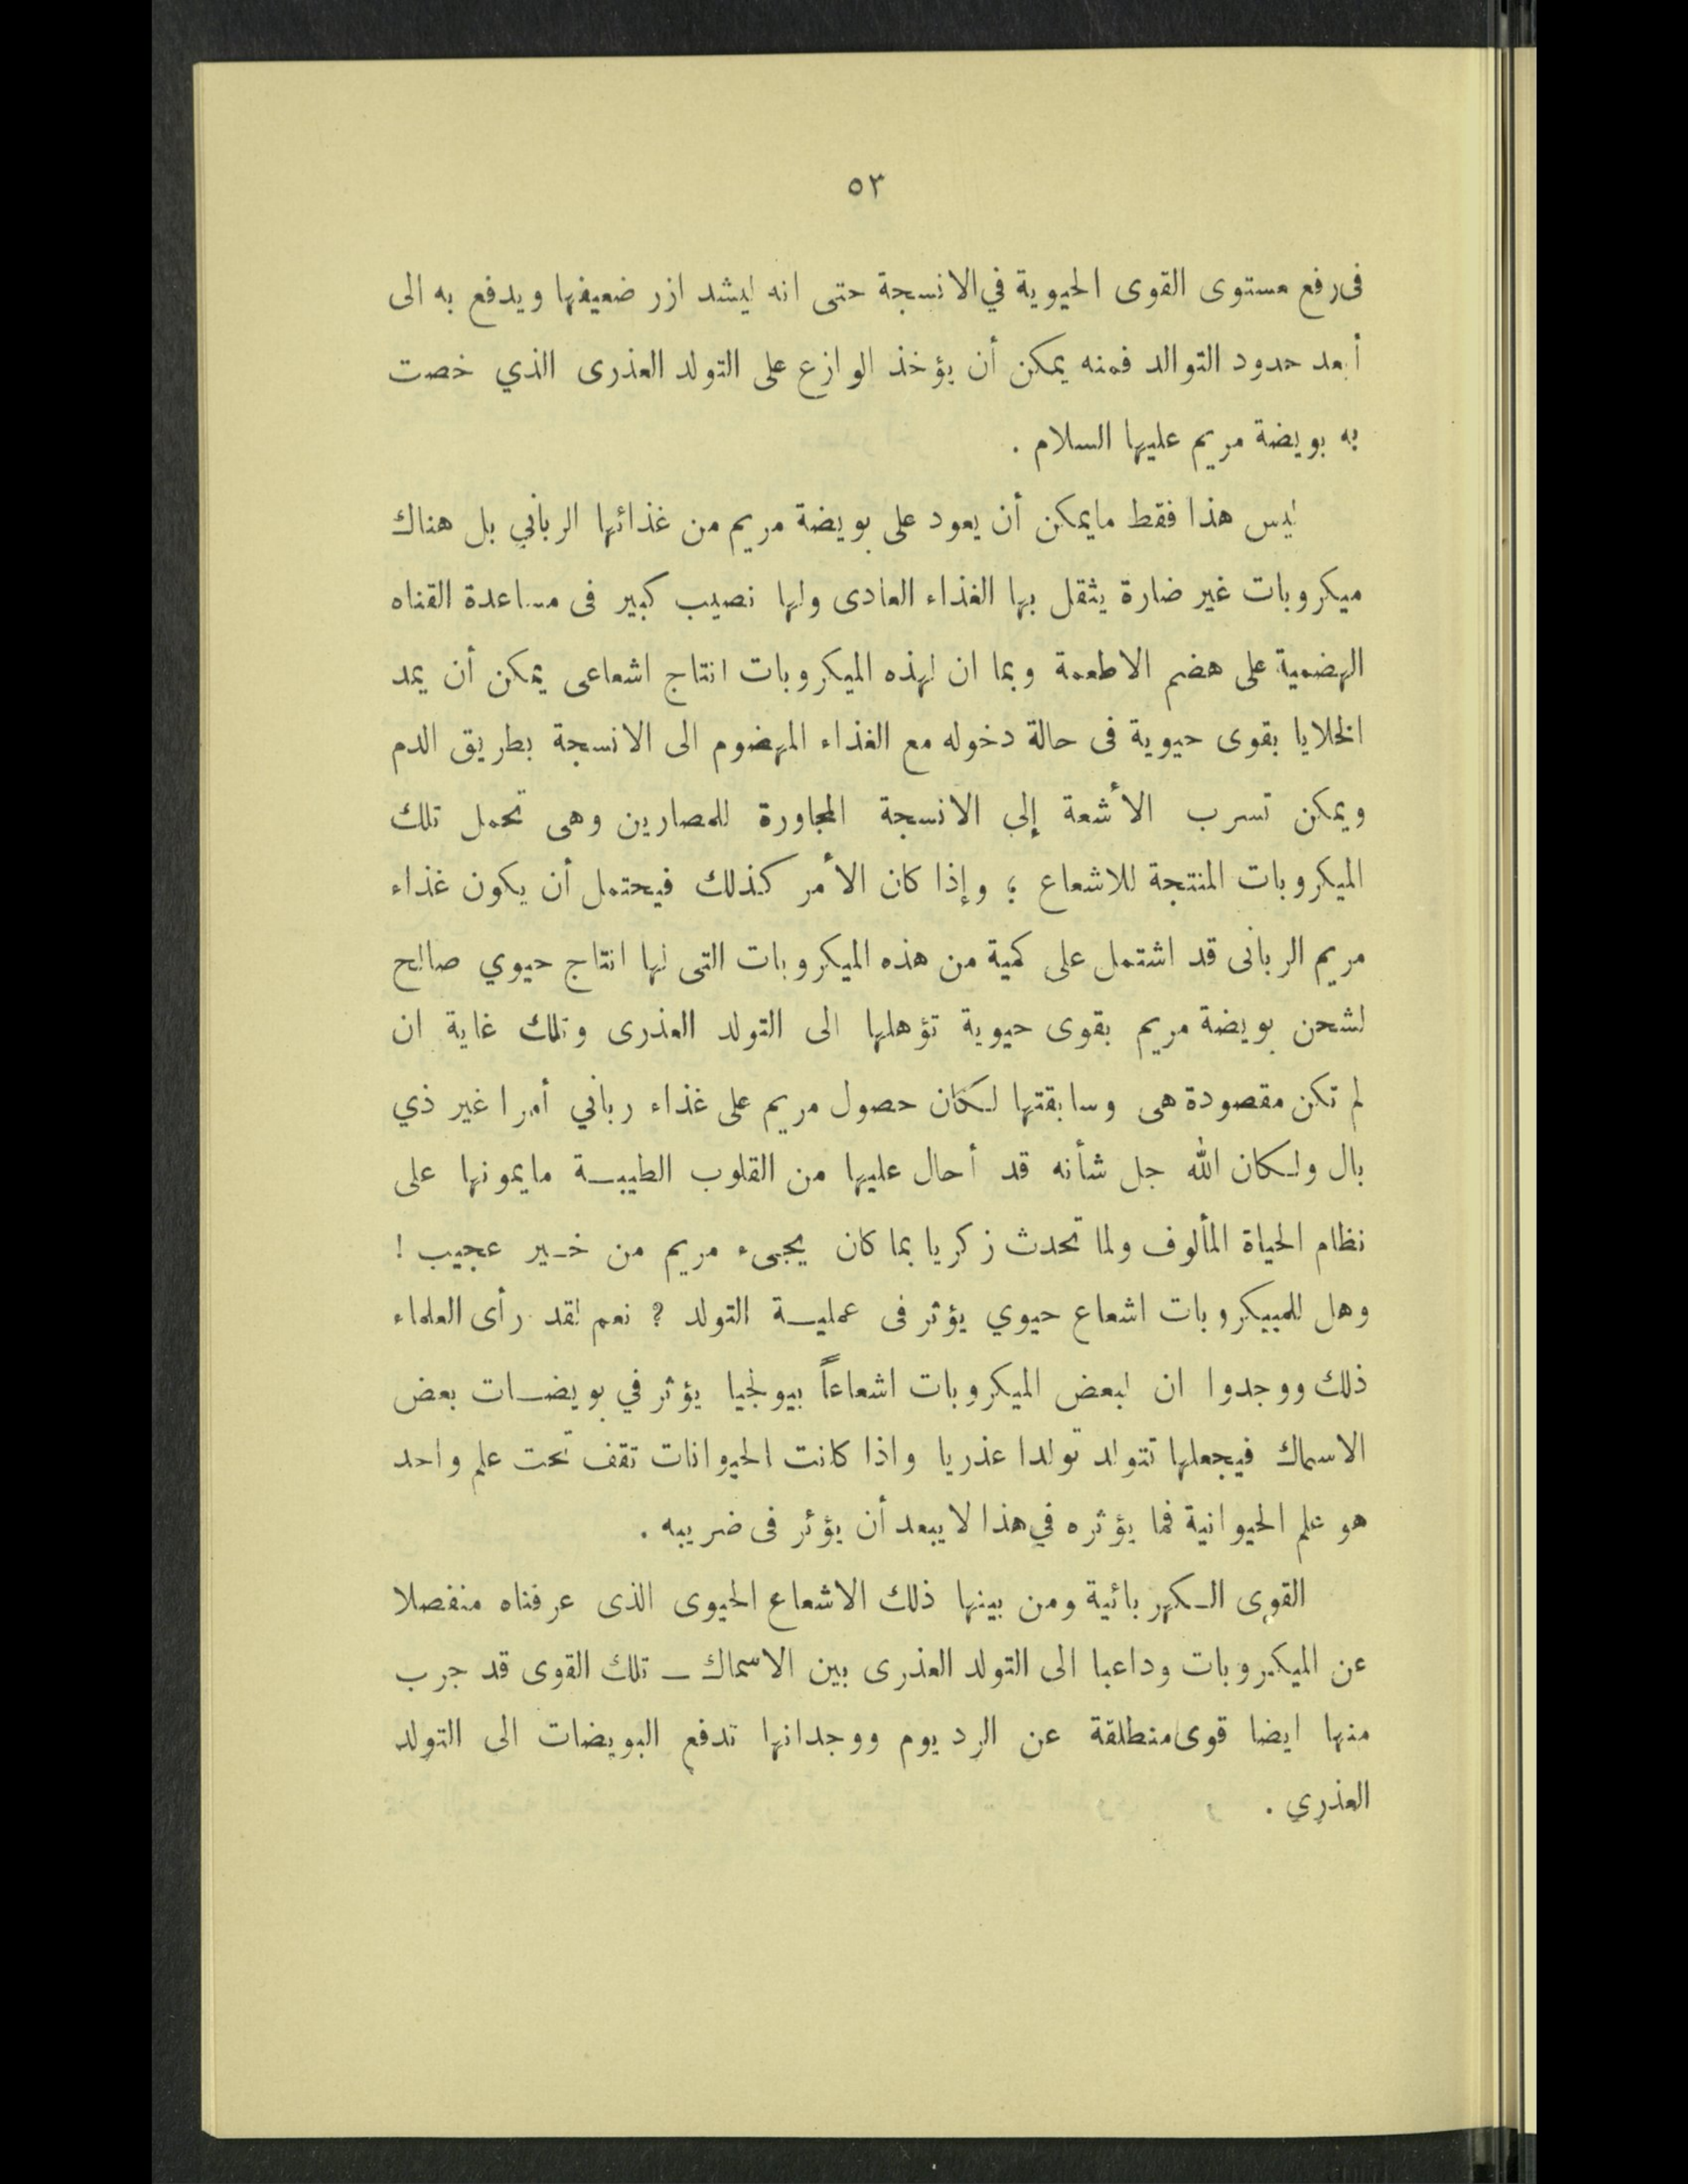 ٥٣
فى رفع مستوى القوى الحيوية في الانسجة حتى انه ليشد ازر ضعيفها ويدفع به الى
أبعد حدود التوالد فمنه يمكن أن يؤخذ الوازع على التولد العذرى الذي خصت
به بويضة مريم عليها السلام .
ليس هذا فقط مايمكن أن يعود على بويضة مريم من غذائها الرباني بل هناك
ميكروبات غير ضارة يثقل بها الغذاء العادى ولها نصيب كبير فى مساعدة القناه
الهضمية على هضم الاطعمة وبما ان لهذه الميكروبات انتاج اشعاعى يمكن أن يمد
الخلايا بقوى حيوية فى حالة دخوله مع الغذاء المهضوم الى الانسجة بطريق الدم
ويمكن تسرب الأشعة إلي الانسجة المجاورة للمصارين وهى تحمل تلك
الميكروبات المنتجة للاشعاع ؛ وإذا كان الأمر كذلك فيحتمل أن يكون غذاء
مريم الربانى قد اشتمل على كمية من هذه الميكروبات التى لها انتاج حيوي صالح
لشحن بويضة مريم بقوى حيوية تؤهلها الى التولد العذرى وتلك غاية ان
لم تكن مقصودة هى وسابقتها لكان حصول مريم على غذاء رباني أمرا غير ذي
بال ولكان الله جل شأنه قد أحال عليها من القلوب الطيبة مايمونها على
نظام الحياة المألوف ولما تحدث زكريا بما كان يجىء مريم من خير عجيب !
وهل للمييكروبات اشعاع حيوي يؤثر فى عملية التولد ؟ نعم لقد رأى العلماء
ذلك ووجدوا ان لبعض الميكروبات اشعاعاً بيولجيا يؤثر في بويضات بعض
الاسماك فيجعلها تتولد تولدا عذريا واذا كانت الحيوانات تقف تحت علم واحد
هو علم الحيوانية فما يؤثره في هذا لا يبعد أن يؤثر فى ضريبه .
القوى الكهربائية ومن بينها ذلك الاشعاع الحيوى الذى عرفناه منفصلا
عن الميكيروبات وداعيا الى التولد العذرى بين الاسماك ــ تلك القوى قد جرب
منها ايضا قوى منطلقة عن الرديوم ووجدانها تدفع البويضات الى التولد
العذري .